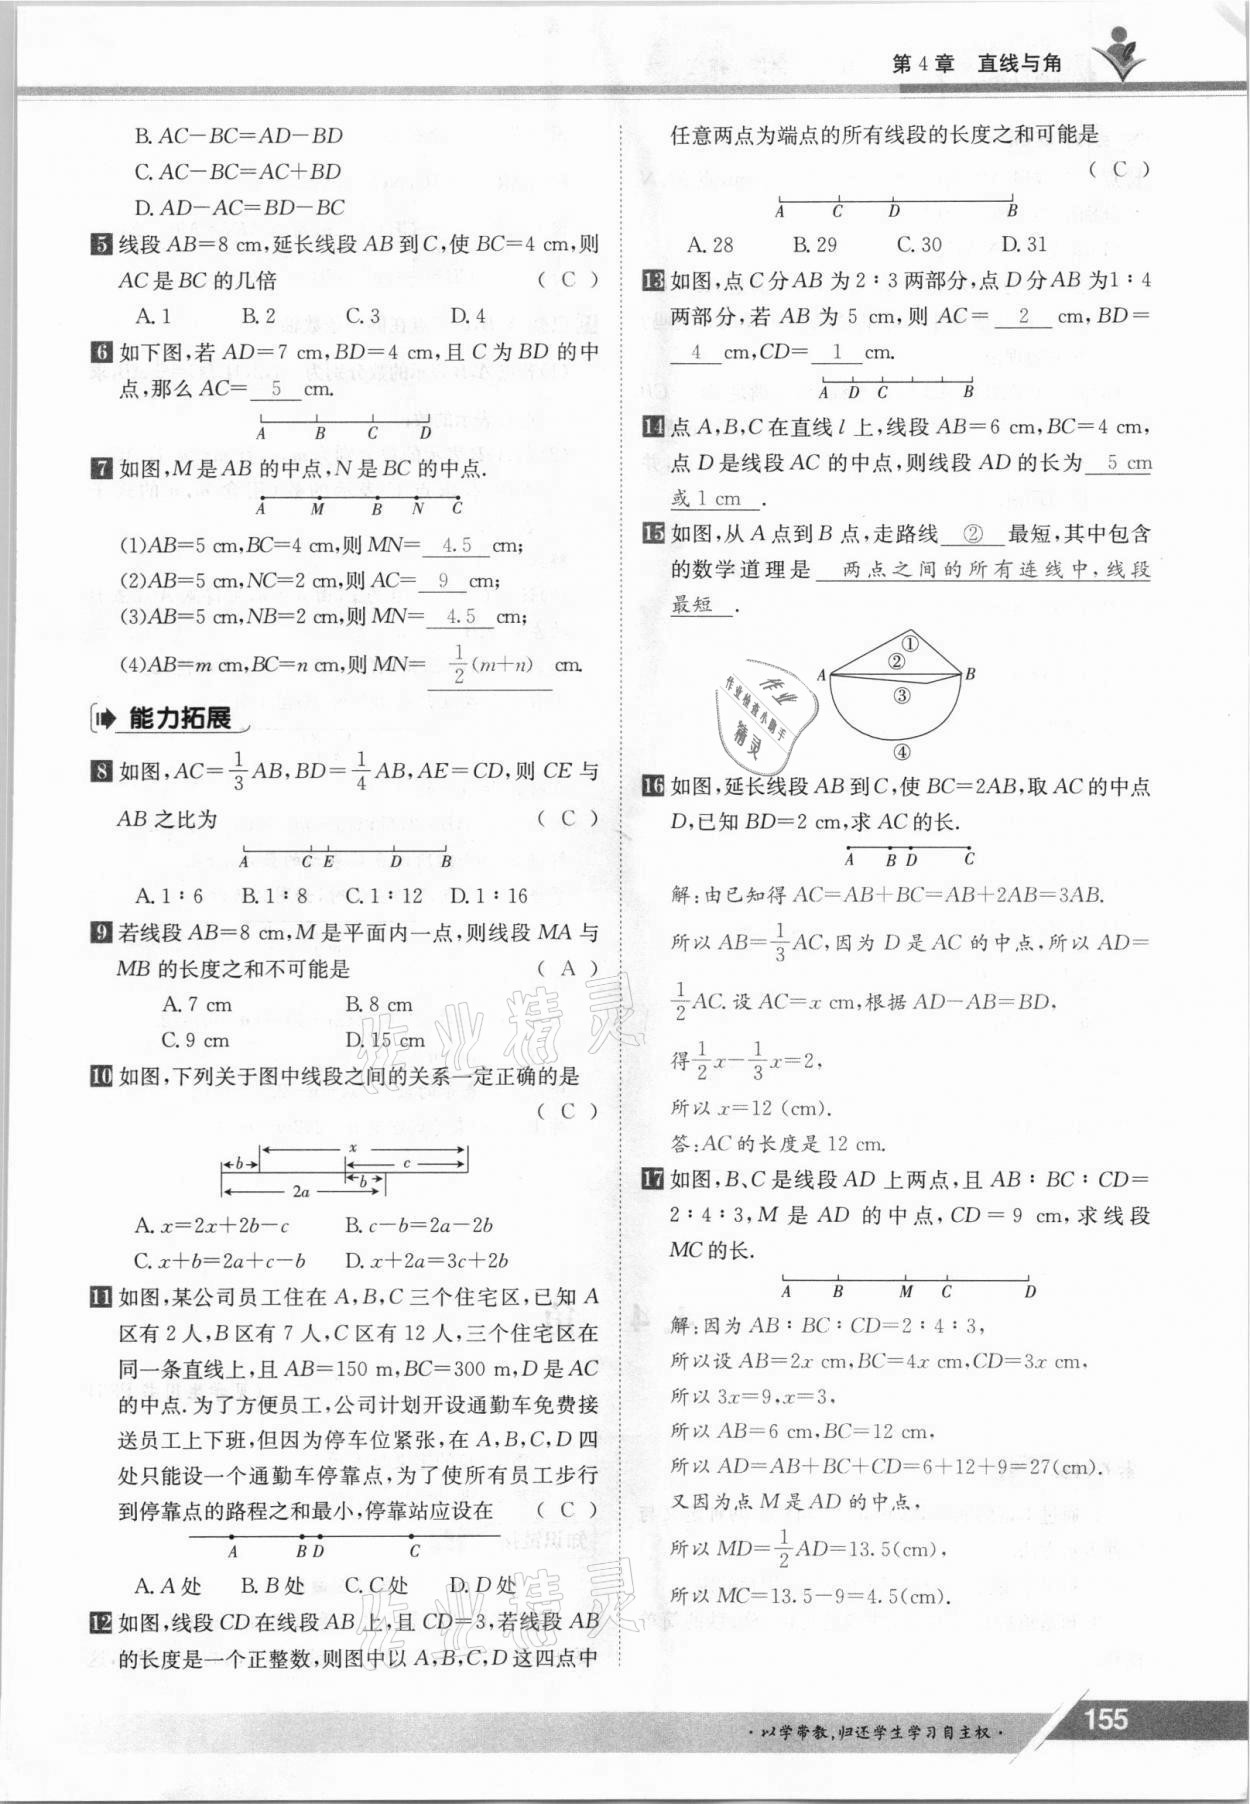 第4章 直线与角
B. AC－BC＝AD－BD
C. AC－BC＝AC＋BD
D. AD－AC＝BD－BC
5 线段 AB＝8 cm,延长线段 AB 到 C,使 BC＝4 cm,则
AC 是 BC 的几倍 （ C ）
A. 1 B. 2 C. 3 D. 4
6 如下图,若 AD＝7 cm,BD＝4 cm,且 C 为 BD 的中
点,那么 AC＝ 5 cm.
A B C D
7 如图,M 是 AB 的中点,N 是 BC 的中点.
A M B N C
(1)AB＝5 cm,BC＝4 cm,则 MN＝ 4.5 cm;
(2)AB＝5 cm,NC＝2 cm,则 AC＝ 9 cm;
(3)AB＝5 cm,NB＝2 cm,则 MN＝ 4.5 cm;
(4)AB＝m cm,BC＝n cm,则 MN＝ 1/2(m＋n) cm.
能力拓展
8 如图,AC＝1/3AB,BD＝1/4AB,AE＝CD,则 CE 与
AB 之比为 （ C ）
A C E D B
A. 1∶6 B. 1∶8 C. 1∶12 D. 1∶16
9 若线段 AB＝8 cm,M 是平面内一点,则线段 MA 与
MB 的长度之和不可能是 （ A ）
A. 7 cm B. 8 cm
C. 9 cm D. 15 cm
10 如图,下列关于图中线段之间的关系一定正确的是
（ C ）
x
b c
b
2a
A. x＝2x＋2b－c B. c－b＝2a－2b
C. x＋b＝2a＋c－b D. x＋2a＝3c＋2b
11 如图,某公司员工住在 A,B,C 三个住宅区,已知 A
区有 2 人,B 区有 7 人,C 区有 12 人,三个住宅区在
同一条直线上,且 AB＝150 m,BC＝300 m,D 是 AC
的中点.为了方便员工,公司计划开设通勤车免费接
送员工上下班,但因为停车位紧张,在 A,B,C,D 四
处只能设一个通勤车停靠点,为了使所有员工步行
到停靠点的路程之和最小,停靠站应设在 （ C ）
A B D C
A. A 处 B. B 处 C. C 处 D. D 处
12 如图,线段 CD 在线段 AB 上,且 CD＝3,若线段 AB
的长度是一个正整数,则图中以 A,B,C,D 这四点中
任意两点为端点的所有线段的长度之和可能是
（ C ）
A C D B
A. 28 B. 29 C. 30 D. 31
13 如图,点 C 分 AB 为 2∶3 两部分,点 D 分 AB 为 1∶4
两部分,若 AB 为 5 cm,则 AC＝ 2 cm,BD＝
4 cm,CD＝ 1 cm.
A D C B
14 点 A,B,C 在直线 l 上,线段 AB＝6 cm,BC＝4 cm,
点 D 是线段 AC 的中点,则线段 AD 的长为 5 cm
或 1 cm .
15 如图,从 A 点到 B 点,走路线 ② 最短,其中包含
的数学道理是 两点之间的所有连线中,线段
最短 .
①
②
A B
③
④
作业
作业检查小助手
精灵
16 如图,延长线段 AB 到 C,使 BC＝2AB,取 AC 的中点
D,已知 BD＝2 cm,求 AC 的长.
A B D C
解:由已知得 AC＝AB＋BC＝AB＋2AB＝3AB.
所以 AB＝1/3AC,因为 D 是 AC 的中点,所以 AD＝
1/2AC.设 AC＝x cm,根据 AD－AB＝BD,
得1/2x－1/3x＝2,
所以 x＝12 (cm).
答:AC 的长度是 12 cm.
17 如图,B、C 是线段 AD 上两点,且 AB∶BC∶CD＝
2∶4∶3,M 是 AD 的中点,CD＝9 cm,求线段
MC 的长.
A B M C D
解:因为 AB∶BC∶CD＝2∶4∶3,
所以设 AB＝2x cm,BC＝4x cm,CD＝3x cm,
所以 3x＝9,x＝3,
所以 AB＝6 cm,BC＝12 cm,
所以 AD＝AB＋BC＋CD＝6＋12＋9＝27(cm).
又因为点 M 是 AD 的中点,
所以 MD＝1/2AD＝13.5(cm),
所以 MC＝13.5－9＝4.5(cm).
作业精灵
作业精灵
·以学带教,归还学生学习自主权·
155